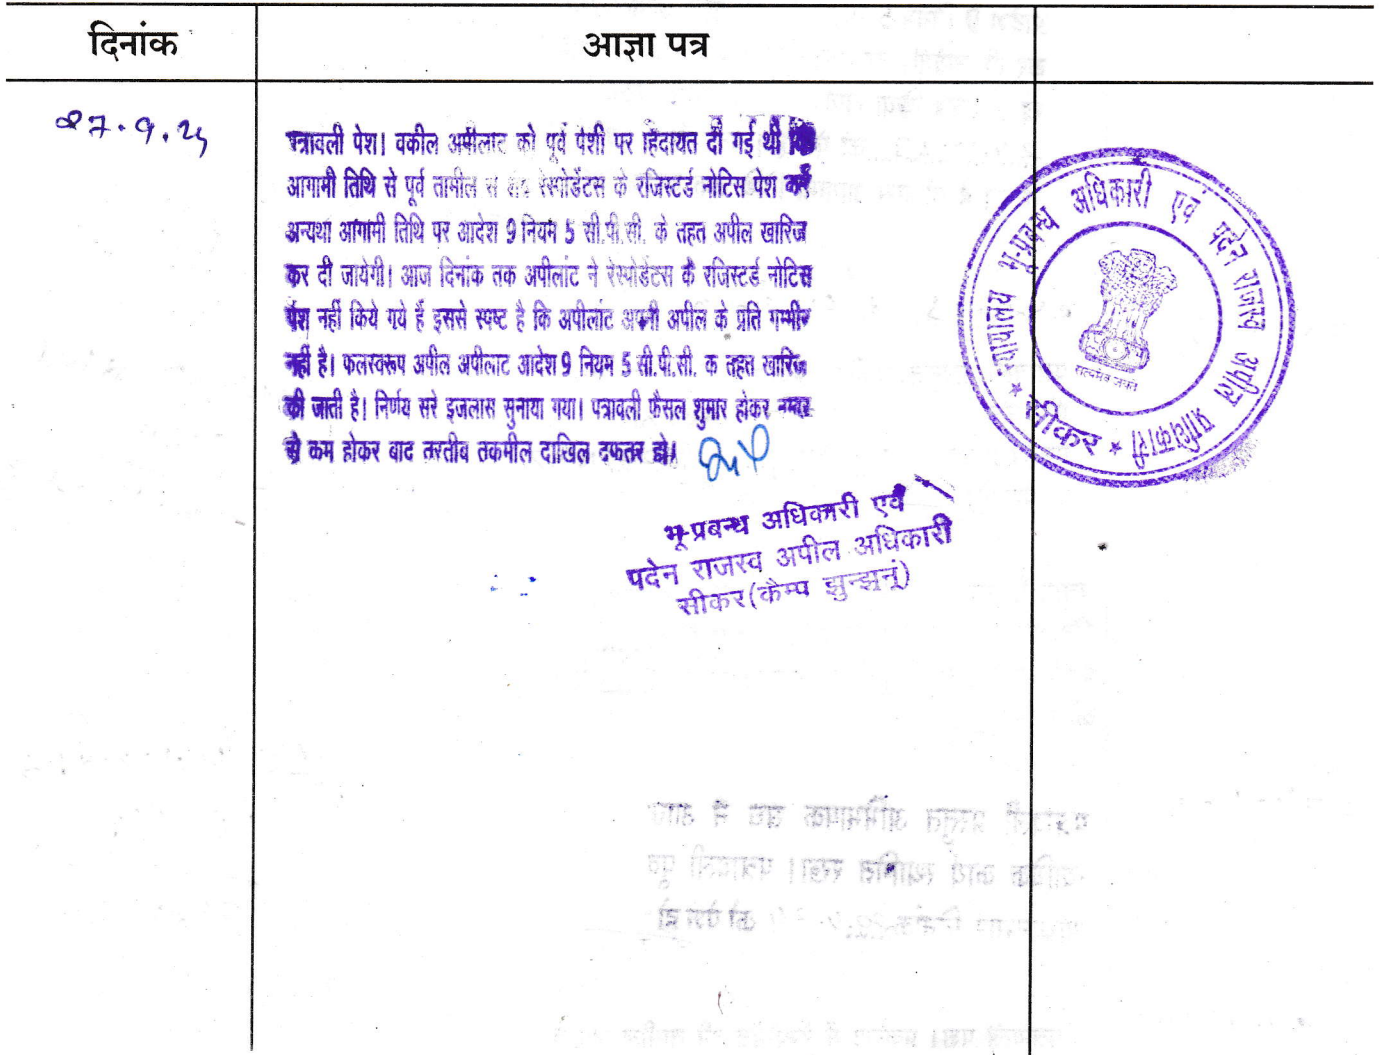 दिनांक
आज्ञा पत्र
27.9.25
पत्रावली पेश। वकील अपीलांट को पूर्व पेशी पर हिदायत दी गई थी कि
आगामी तिथि से पूर्व तामील से शेष रेस्पोडेंटस के रजिस्टर्ड नोटिस पेश करें
अन्यथा आगामी तिथि पर आदेश 9 नियम 5 सी.पी.सी. के तहत अपील खारिज
कर दी जायेगी। आज दिनांक तक अपीलांट ने रेस्पोडेंटस के रजिस्टर्ड नोटिस
पेश नहीं किये गये हैं इससे स्पष्ट है कि अपीलांट अपनी अपील के प्रति गम्भीर
नहीं है। फलस्वरूप अपील अपीलाट आदेश 9 नियम 5 सी.पी.सी. क तहत खारिज
की जाती है। निर्णय सरे इजलास सुनाया गया। पत्रावली फैसल शुमार होकर नम्बर
से कम होकर बाद तरतीब तकमील दाखिल दफतर हो।
भू-प्रबन्ध अधिकारी एवं
पदेन राजस्व अपील अधिकारी
सीकर(कैम्प झुन्झुनूं)
न्यायालय भू-प्रबन्ध अधिकारी एवं पदेन राजस्व अपील प्राधिकारी
* सीकर *
सत्यमेव जयते